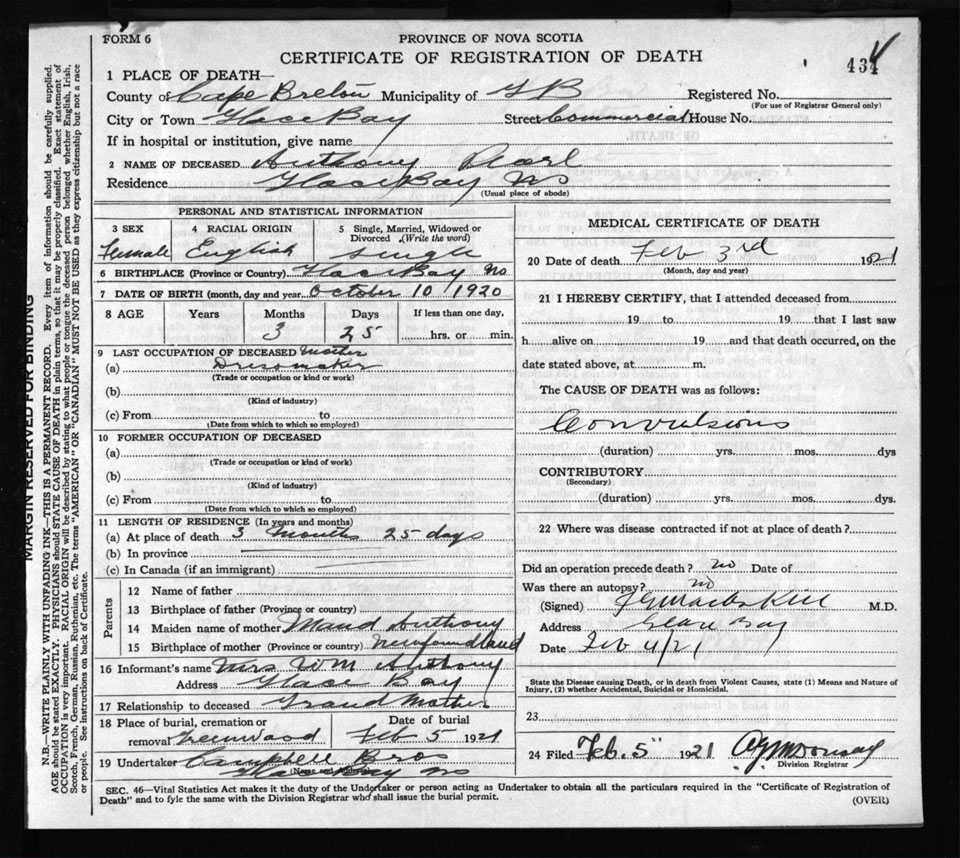 FORM 6
PROVINCE OF NOVA SCOTIA
CERTIFICATE OF REGISTRATION OF DEATH
434
1 PLACE OF DEATH—
County of Cape Breton Municipality of G B Registered No.
(For use of Registrar General only)
City or Town Glace Bay Street Commercial House No.
If in hospital or institution, give name
2 NAME OF DECEASED Anthony Pearl
Residence Glace Bay NS
(Usual place of abode)
PERSONAL AND STATISTICAL INFORMATION
3 SEX 4 RACIAL ORIGIN 5 Single, Married, Widowed or Divorced (Write the word)
Female English Single
6 BIRTHPLACE (Province or Country) Glace Bay NS
7 DATE OF BIRTH (month, day and year) October 10 1920
8 AGE Years Months Days If less than one day,
3 25 hrs. or min.
9 LAST OCCUPATION OF DECEASED Mother
(a) Dressmaker
(Trade or occupation or kind or work)
(b)
(Kind of industry)
(c) From to
(Date from which to which so employed)
10 FORMER OCCUPATION OF DECEASED
(a)
(Trade or occupation or kind of work)
(b)
(Kind of industry)
(c) From to
(Date from which to which so employed)
11 LENGTH OF RESIDENCE (In years and months)
(a) At place of death 3 Months 25 days
(b) In province
(c) In Canada (if an immigrant)
Parents
12 Name of father
13 Birthplace of father (Province or country)
14 Maiden name of mother Maud Anthony
15 Birthplace of mother (Province or country) Newfoundland
16 Informant's name Mrs WM Anthony
Address Glace Bay
17 Relationship to deceased Grand Mother
18 Place of burial, cremation or removal Greenwood Date of burial Feb 5 1921
19 Undertaker Campbell Bros
Glace Bay NS
(Name and address)
MEDICAL CERTIFICATE OF DEATH
20 Date of death Feb 3rd 1921
(Month, day and year)
21 I HEREBY CERTIFY, that I attended deceased from
19 to 19 that I last saw
h alive on 19 and that death occurred, on the
date stated above, at m.
The CAUSE OF DEATH was as follows:
Convulsions
(duration) yrs. mos. dys
CONTRIBUTORY
(Secondary)
(duration) yrs. mos. dys.
22 Where was disease contracted if not at place of death?
Did an operation precede death? no Date of
Was there an autopsy? no
(Signed) M.D.
Address Glace Bay
Date Feb 4/21
State the Disease causing Death, or in death from Violent Causes, state (1) Means and Nature of
Injury, (2) whether Accidental, Suicidal or Homicidal.
23
24 Filed Feb. 5 1921
Division Registrar
SEC. 46—Vital Statistics Act makes it the duty of the Undertaker or person acting as Undertaker to obtain all the particulars required in the "Certificate of Registration of
Death" and to fyle the same with the Division Registrar who shall issue the burial permit.
(OVER)
MARGIN RESERVED FOR BINDING
N.B.—WRITE PLAINLY, WITH UNFADING INK—THIS IS A PERMANENT RECORD. Every item of information should be carefully supplied.
AGE should be stated EXACTLY. PHYSICIANS should STATE CAUSE OF DEATH in plain terms, so that it may be properly classified. Exact statement of
OCCUPATION is very important. RACIAL ORIGIN will be described by stating to what people or tongue the deceased person belonged whether English, Irish,
Scotch, French, German, Russian, Ruthenian, etc. The terms "AMERICAN" OR "CANADIAN" MUST NOT BE USED as they express citizenship but not a race
or people. See instructions on back of Certificate.